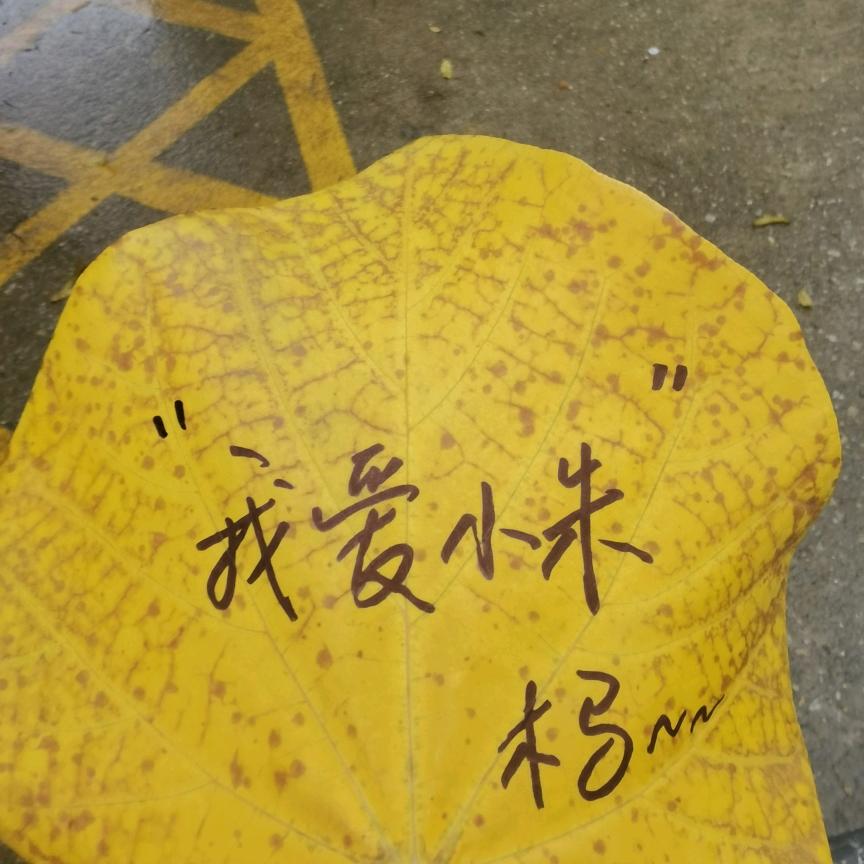 "我爱小朱"
杨~~